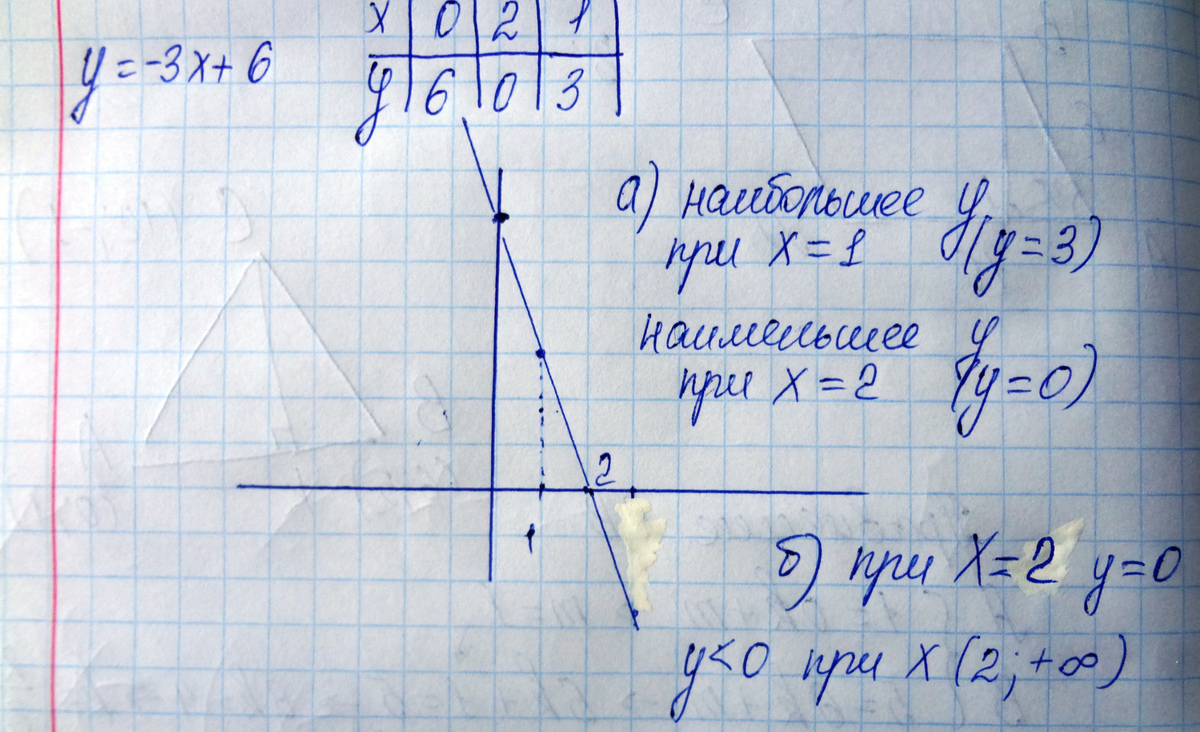 y = -3x + 6
x 0 2 1
y 6 0 3
а) наибольшее y
при x = 1 (y = 3)
наименьшее y
при x = 2 (y = 0)
2
1
б) при x = 2 y = 0
y < 0 при x (2; +∞)